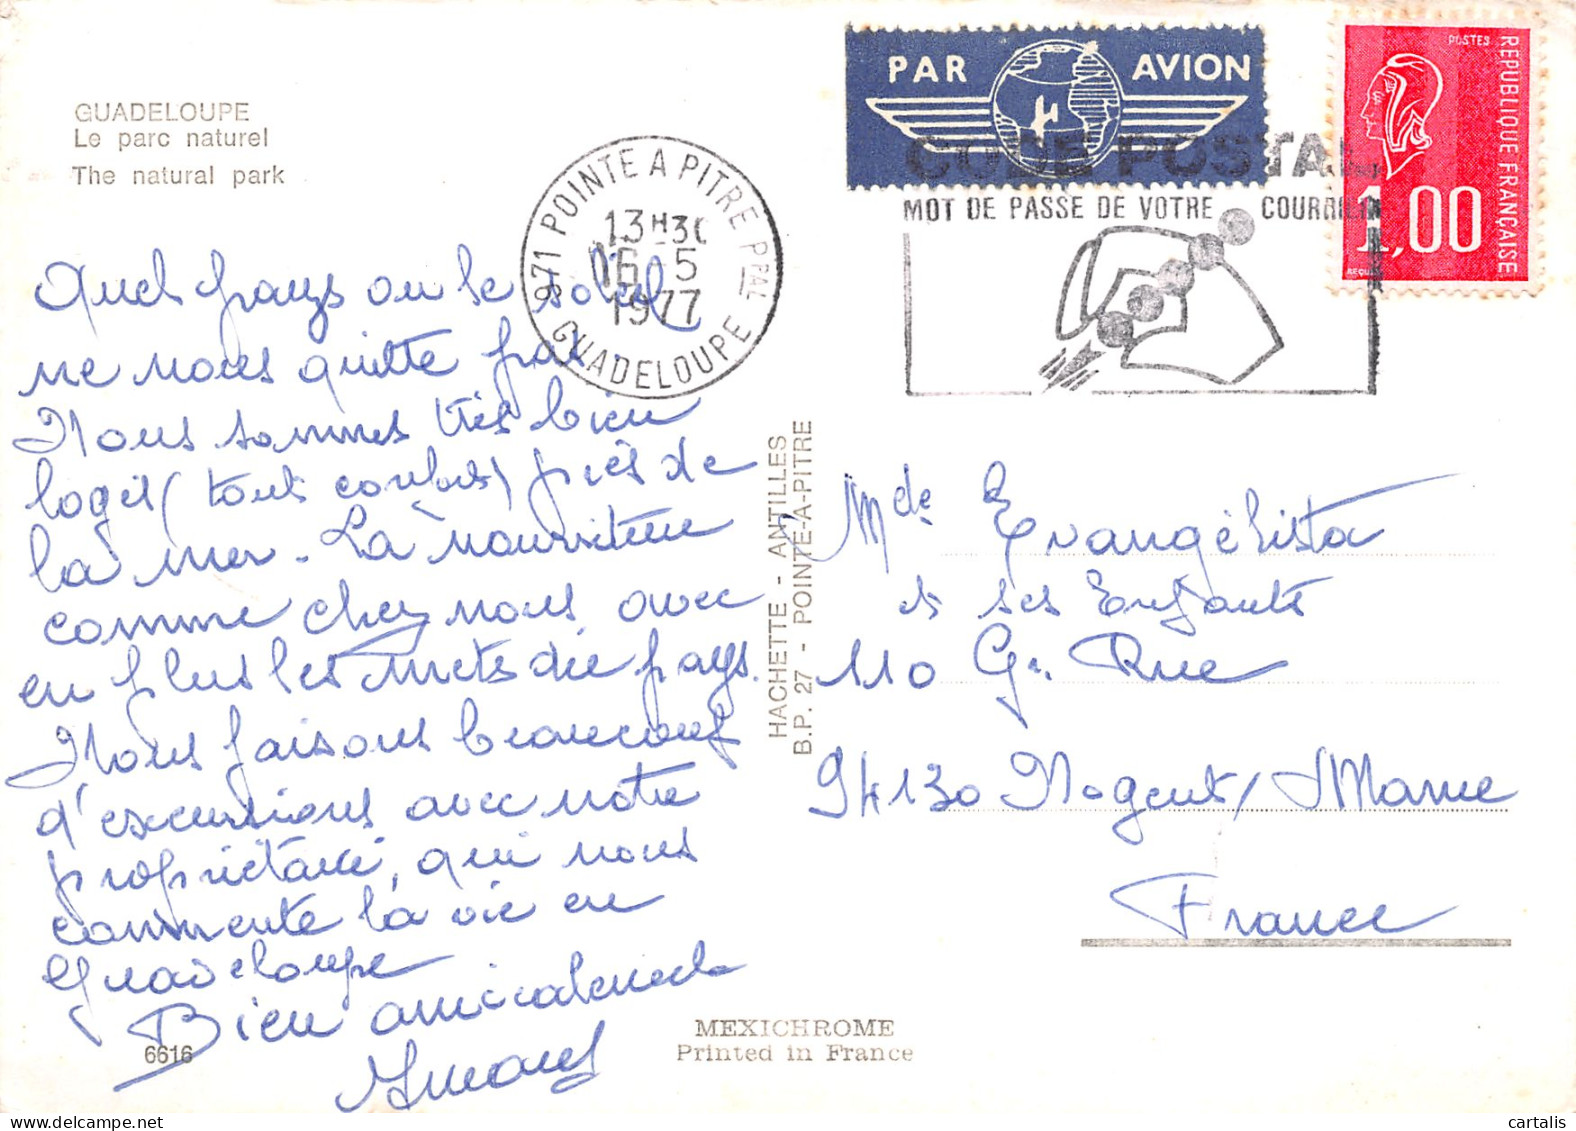 GUADELOUPE
Le parc naturel
The natural park
PAR AVION
CODE POSTAL
MOT DE PASSE DE VOTRE COURRIER
POSTES
REPUBLIQUE FRANÇAISE
1,00
971 POINTE A PITRE PPAL
13H30
16-5
1977
GUADELOUPE
Quel pays ou le soleil
ne nous quitte pas.
Nous sommes très bien
logés (tout confort) près de
la mer. La nourriture
comme chez nous avec
en plus les mets du pays.
Nous faisons beaucoup
d'excursions avec notre
propriétaire, qui nous
commente la vie en
Guadeloupe
Bien amicalement
HACHETTE - ANTILLES
B.P. 27 - POINTE-A-PITRE
Mde Evangélista
et ses Enfants
110 Gde Rue
94130 Nogent/Marne
France
6616
MEXICHROME
Printed in France
cartalis